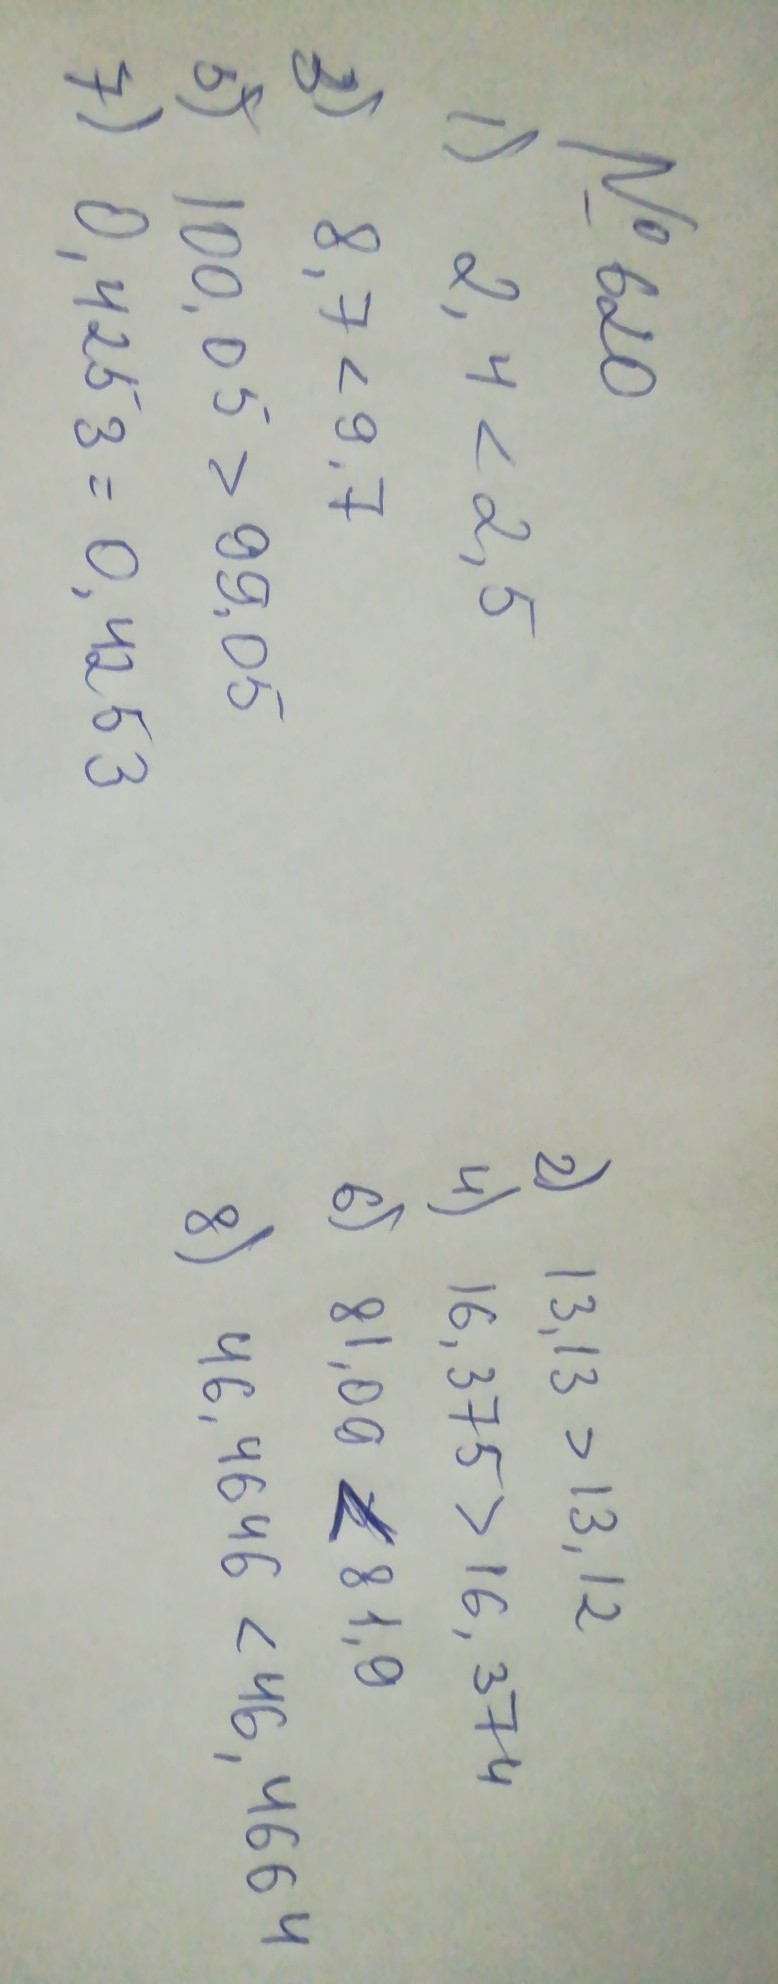 № 620
1) 2,4 < 2,5
3) 8,7 < 9,7
5) 100,05 > 99,05
7) 0,4253 = 0,4253
2) 13,13 > 13,12
4) 16,375 > 16,374
6) 81,09 < 81,9
8) 46,4646 < 46,4664